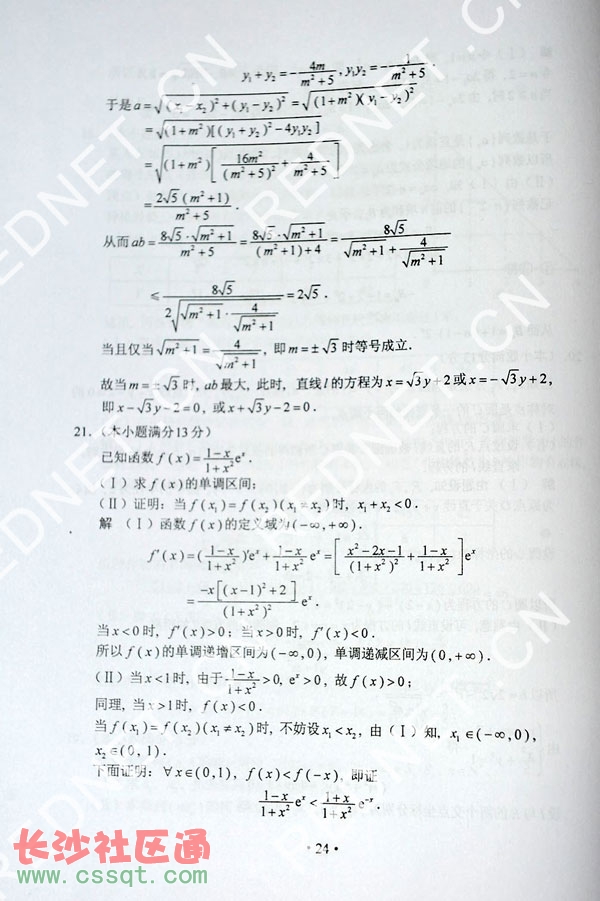 y₁+y₂=-4m/(m²+5), y₁y₂=-1/(m²+5).
于是a=√((x₁-x₂)²+(y₁-y₂)²)=√((1+m²)(y₁-y₂)²)
=√((1+m²)[(y₁+y₂)²-4y₁y₂])
=√((1+m²)[16m²/(m²+5)²+4/(m²+5)])
=2√5(m²+1)/(m²+5).
从而ab=8√5·√(m²+1)/(m²+5)=8√5·√(m²+1)/((m²+1)+4)=8√5/(√(m²+1)+4/√(m²+1))
≤8√5/(2√(√(m²+1)·4/√(m²+1)))=2√5.
当且仅当√(m²+1)=4/√(m²+1), 即m=±√3时等号成立.
故当m=±√3时, ab最大, 此时, 直线l的方程为x=√3y+2或x=-√3y+2,
即x-√3y-2=0, 或x+√3y-2=0.
21. (本小题满分13分)
已知函数f(x)=(1-x)/(1+x²)eˣ.
(Ⅰ) 求f(x)的单调区间;
(Ⅱ) 证明: 当f(x₁)=f(x₂)(x₁≠x₂)时, x₁+x₂<0.
解 (Ⅰ) 函数f(x)的定义域为(-∞,+∞).
f′(x)=((1-x)/(1+x²))′eˣ+(1-x)/(1+x²)eˣ=[(x²-2x-1)/(1+x²)²+(1-x)/(1+x²)]eˣ
=-x[(x-1)²+2]/(1+x²)² eˣ.
当x<0时, f′(x)>0; 当x>0时, f′(x)<0.
所以f(x)的单调递增区间为(-∞,0), 单调递减区间为(0,+∞).
(Ⅱ) 当x<1时, 由于(1-x)/(1+x²)>0, eˣ>0, 故f(x)>0;
同理, 当x>1时, f(x)<0.
当f(x₁)=f(x₂)(x₁≠x₂)时, 不妨设x₁<x₂, 由(Ⅰ)知, x₁∈(-∞,0),
x₂∈(0,1).
下面证明: ∀x∈(0,1), f(x)<f(-x), 即证
(1-x)/(1+x²)eˣ<(1+x)/(1+x²)e⁻ˣ.
·24·
长沙社区通
www.cssqt.com
REDNET.CN
REDNET.CN
REDNET.CN